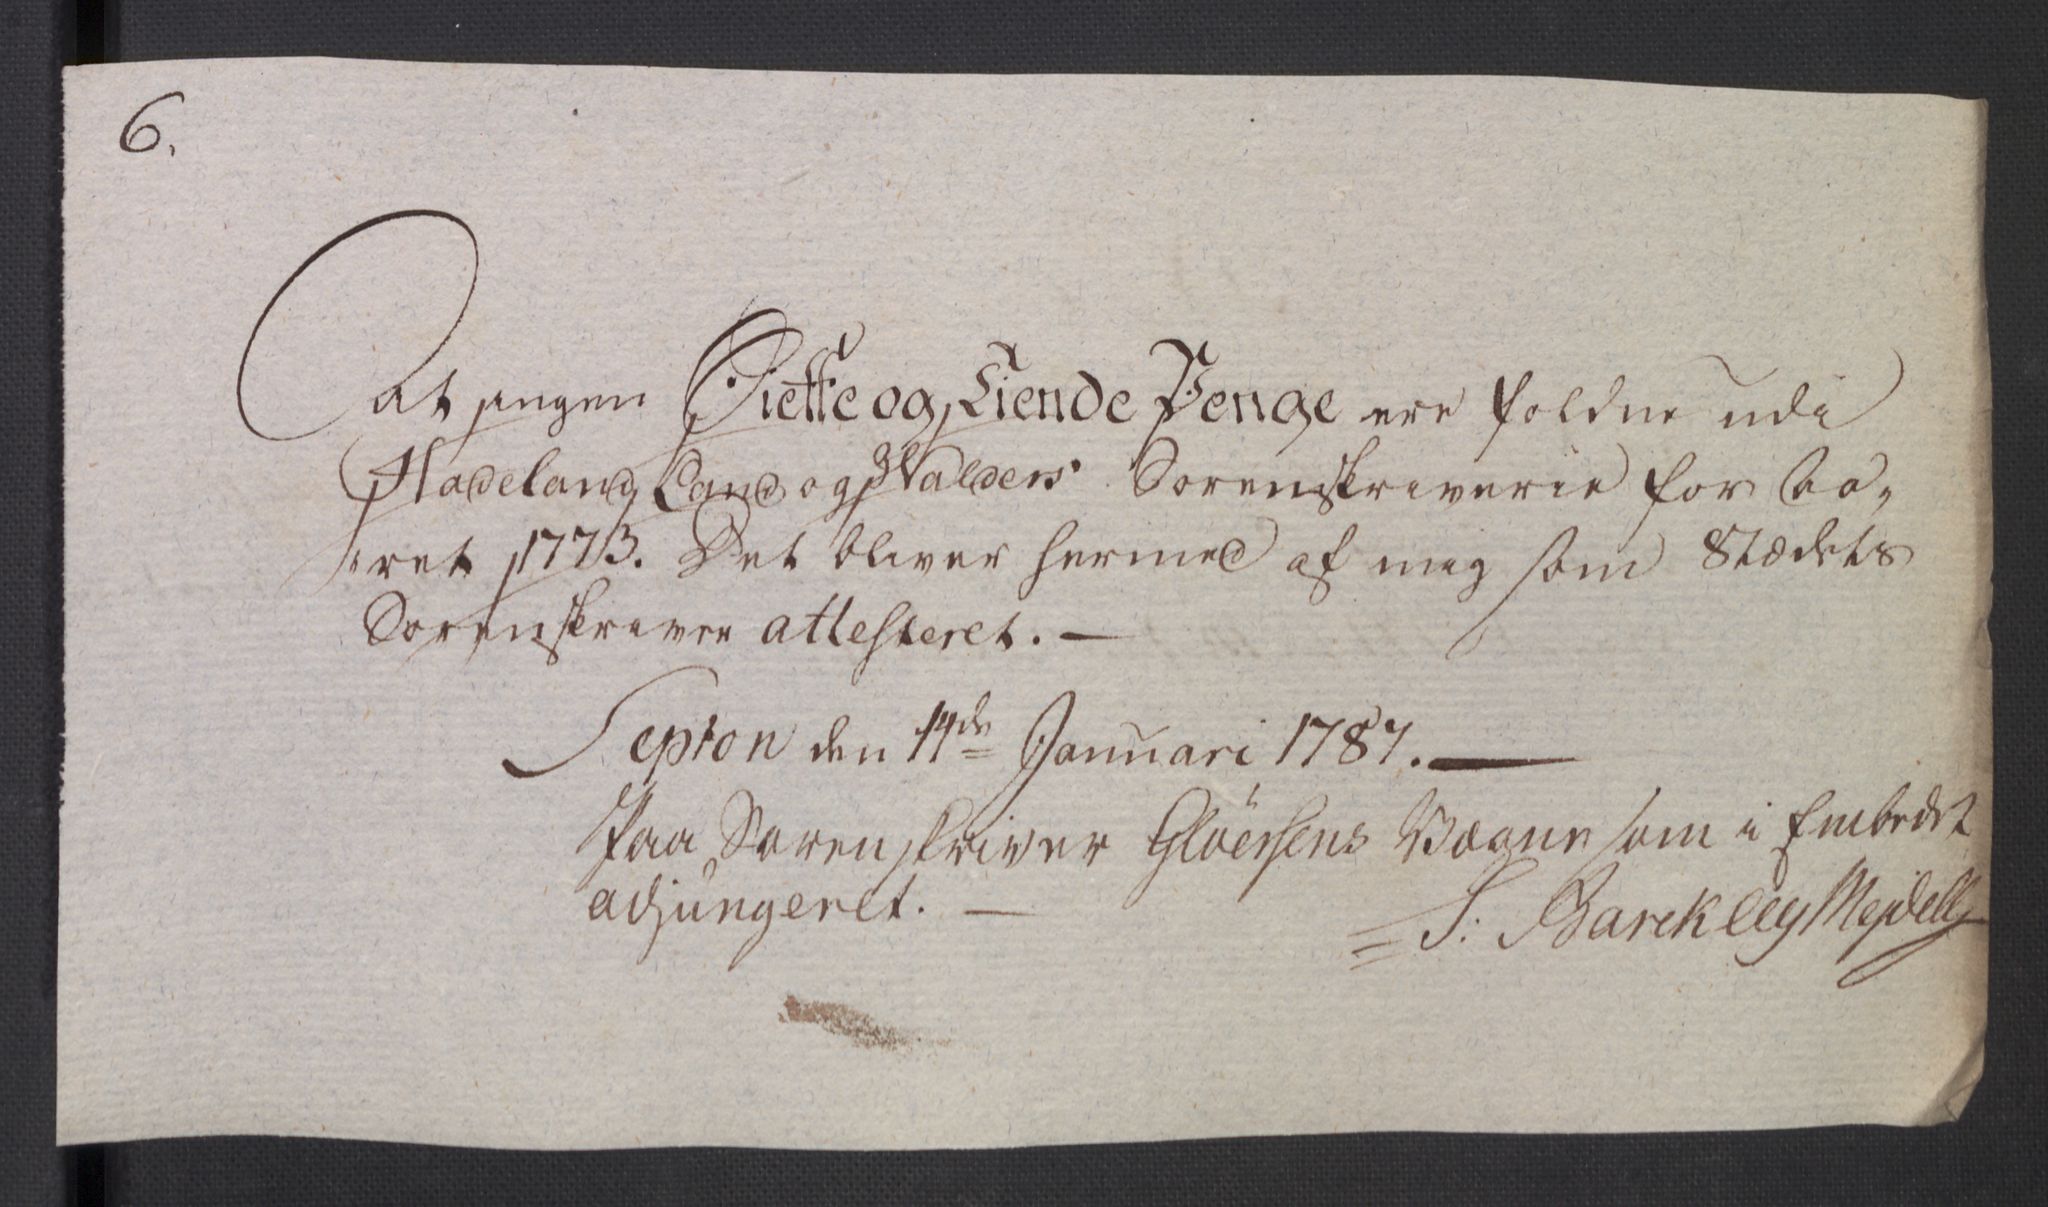 6.
at ingen Siette og Tiende Penge ere faldne udi
Hadeland, Land og Valders Sorenskriverie for Aa,
,ret 1773. Det bliver hermed af mig som Stædets
Sorenskriver attesteret. —
Septon den 14de Januari 1787. —
Paa Sorenskriver Gløersens Vægne som i Embedet
adjungeret. —
S. Barckley Mejdell